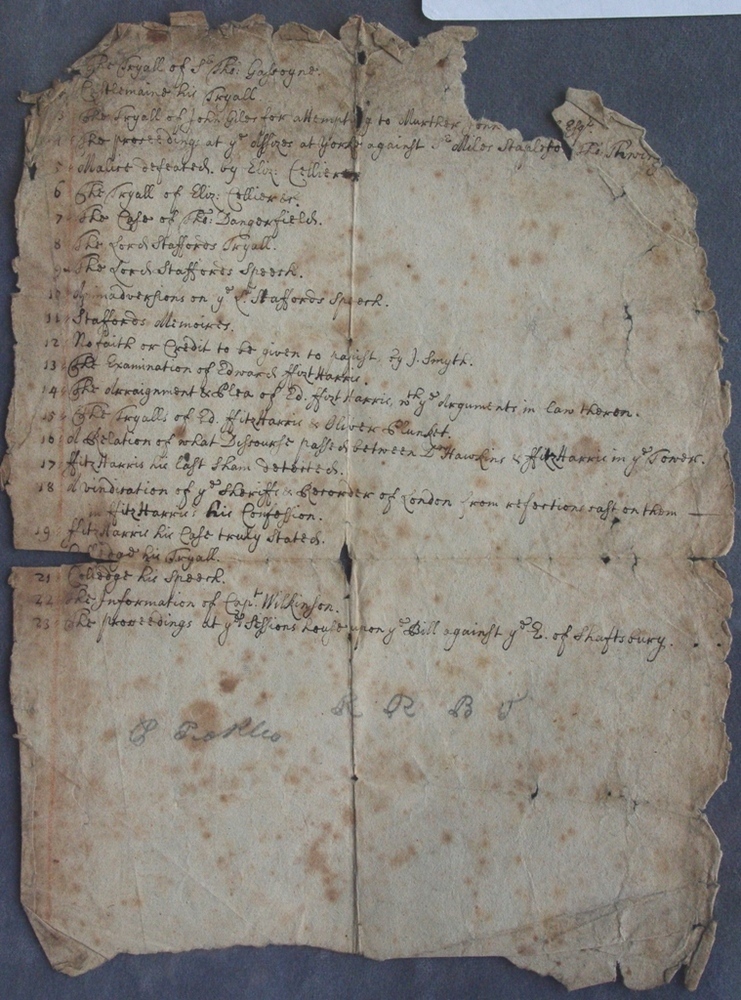 The Tryall of Sr. Tho: Gascoyne.
Castlemaine his Tryall
3 The Tryall of John Giles for attempting to Murther Esqr.
4 The proceedings at ye Assizes at Yorke against Sr. Miles Stapleton Tho Thwing
5 Malice defeated. by Eliz: Cellier
6 The Tryall of Eliz: Cellieres.
7 The Case of Tho: Dangerfield.
8 The Lord Staffords Tryall.
9 The Lord Staffords Speech.
10 Animadversions on ye Ld. Staffords Speech.
11 Staffords Memoires.
12 No faith or Credit to be given to papist. by J. Smyth.
13 The Examination of Edward ffitzHarris.
14 The Arraignment & Plea of Ed. ffitzHarris, wth ye Arguments in law theron.
15 The Tryalls of Ed. ffitzHarris & Oliver Plunket.
16 A Relation of what Discourse passed between Dr Hawkins & ffitzHarris in ye Tower.
17 ffitzHarris his last Sham detected.
18 A vindication of ye Sheriffs & Recorder of London from reflections cast on them
in ffitzHarris's his Confession.
19 ffitzHarris his Case truly stated.
Colledge his Tryall.
21 Colledge his Speech.
22 The Information of Capt. Wilkinson.
23 The proceedings at ye Sessions house upon ye Bill against ye E. of Shaftsbury.
R R B J